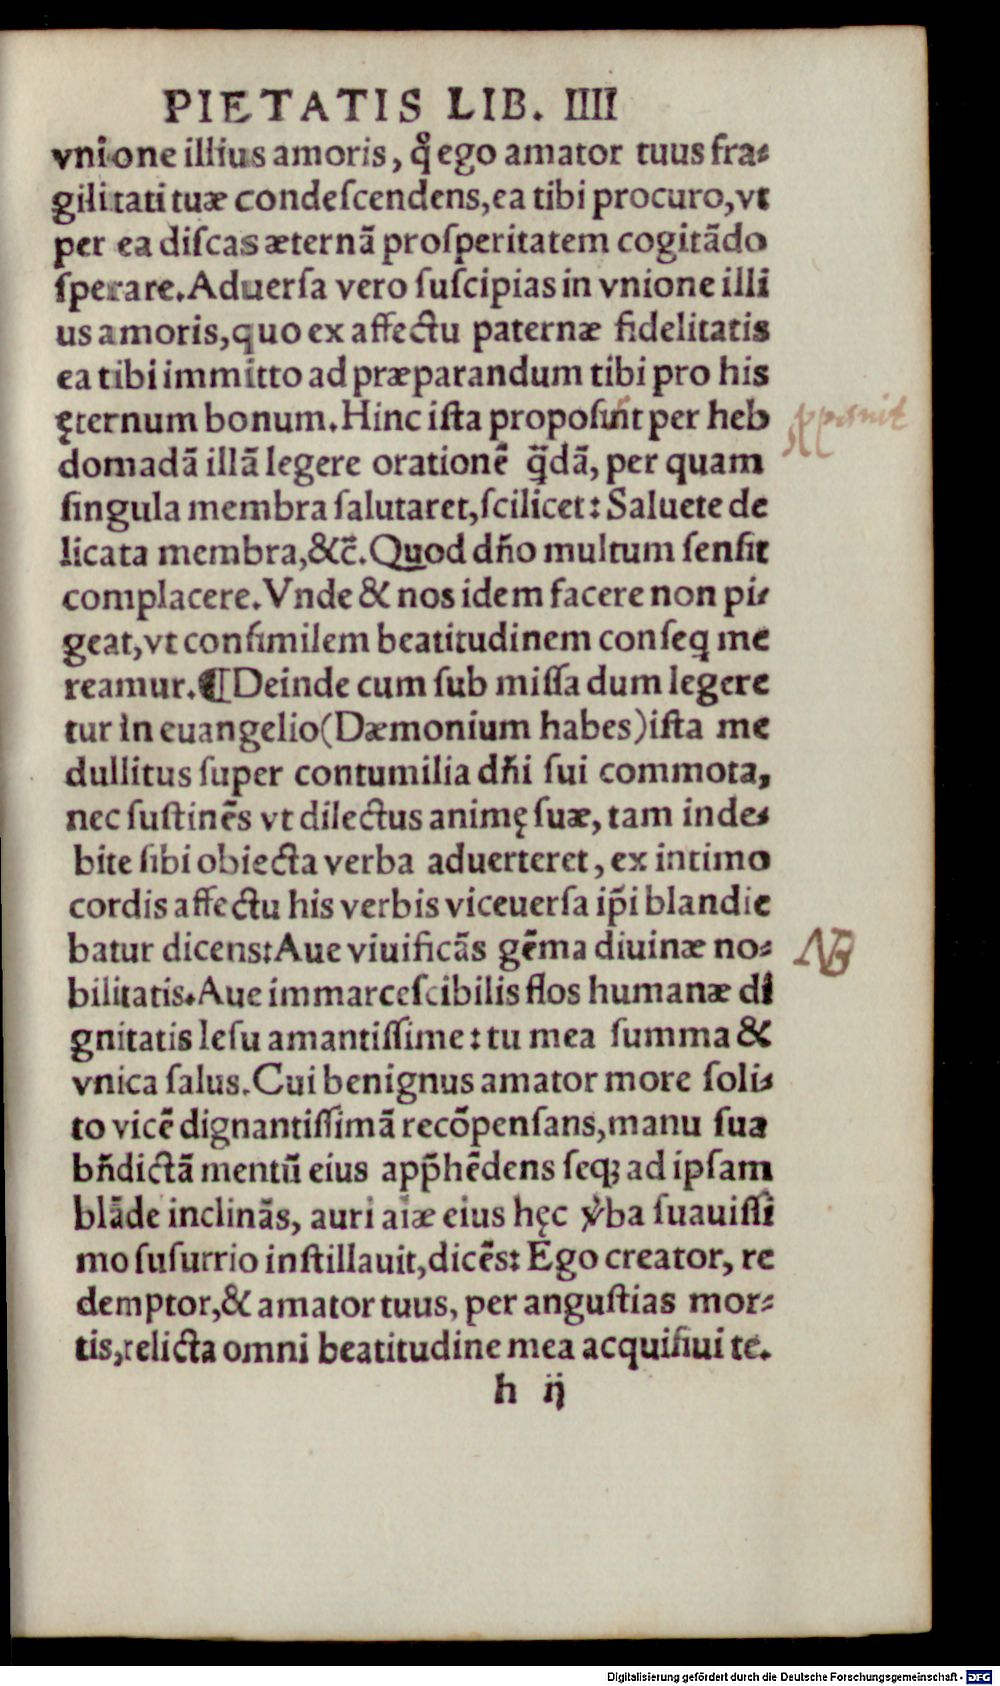 PIETATIS LIB. IIII
vnione illius amoris, qͦ ego amator tuus fra⸗
gilitati tuæ condeſcendens, ea tibi procuro, vt
per ea diſcas æternã proſperitatem cogitãdo
ſperare. Aduerſa vero ſuſcipias in vnione illi
us amoris, quo ex affectu paternæ fidelitatis
ea tibi immitto ad præparandum tibi pro his
ęternum bonum. Hinc iſta propoſuit per heb
domadã illã legere orationẽ q̃dã, per quam
ſingula membra ſalutaret, ſcilicet: Saluete de
licata membra, &c̃. Quod dño multum ſenſit
complacere. Vnde & nos idem facere non pi⸗
geat, vt conſimilem beatitudinem conſeq me
reamur. ¶ Deinde cum ſub miſſa dum legere
tur in euangelio (Dæmonium habes) iſta me
dullitus ſuper contumilia dñi ſui commota,
nec ſuſtinẽs vt dilectus animę ſuæ, tam inde⸗
bite ſibi obiecta verba aduerteret, ex intimo
cordis affectu his verbis viceuerſa ip̃i blandie
batur dicens: Aue viuificãs gẽma diuinæ no⸗
bilitatis. Aue immarceſcibilis flos humanæ di
gnitatis Ieſu amantiſſime: tu mea ſumma &
vnica ſalus. Cui benignus amator more ſoli⸗
to vicẽ dignantiſſimã recõpenſans, manu ſua
bñdictã mentũ eius app̃hẽdens ſeq; ad ipſam
blãde inclinãs, auri aiæ eius hęc v̓ba ſuauiſſi
mo ſuſurrio inſtillauit, dicẽs: Ego creator, re
demptor, & amator tuus, per anguſtias mor⸗
tis, relicta omni beatitudine mea acquiſiui te.
h ij
NB
Digitalisierung gefördert durch die Deutsche Forschungsgemeinschaft - DFG